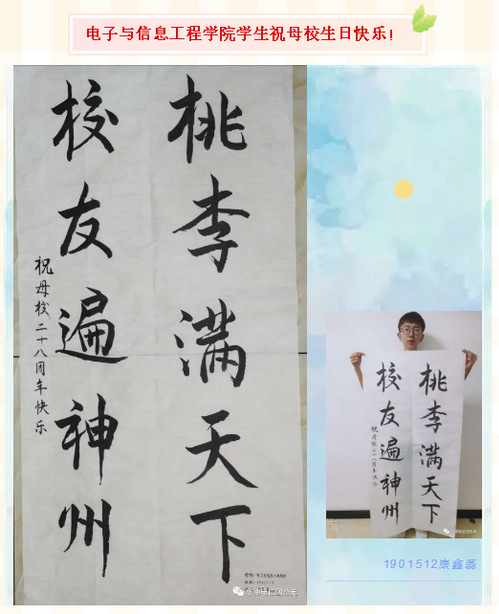 电子与信息工程学院学生祝母校生日快乐!
桃李满天下
校友遍神州
祝母校二十八周年快乐
桃李满天下
校友遍神州
祝母校二十八周年快乐
1901512康鑫磊